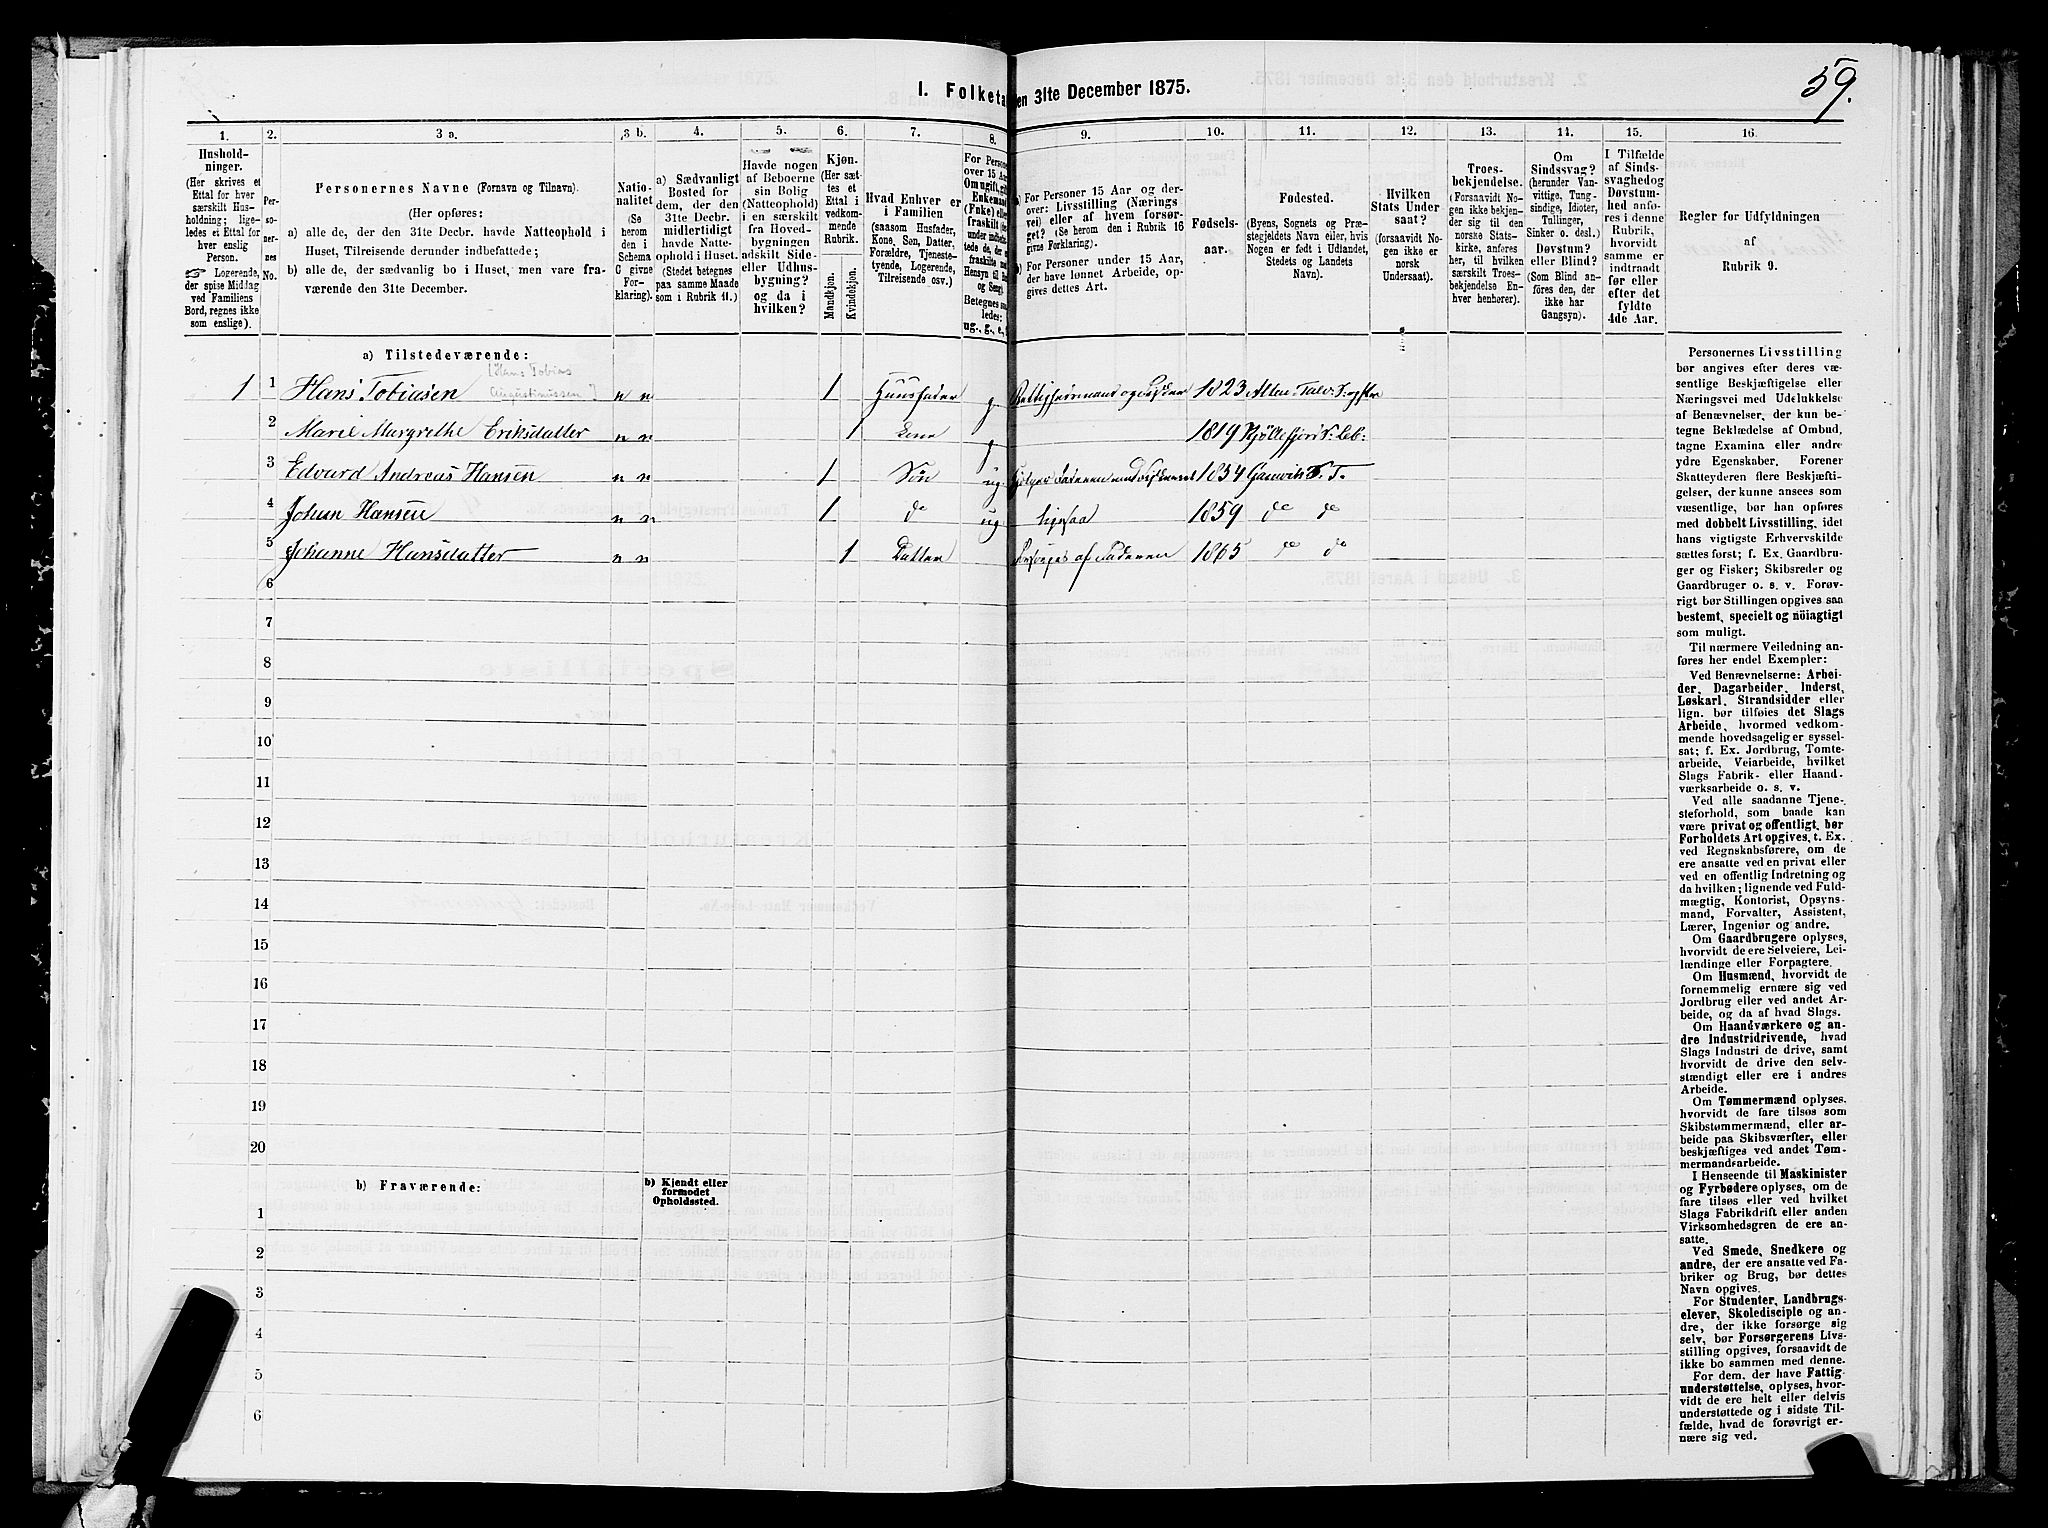 I. Folketa
en 31te December 1875.
59.
1.
2.
3 a.
3 b.
4.
5.
6.
7.
8.
9.
10.
11.
12.
13.
14.
15.
16.
Hushold-
ninger.
(Her skrives et
Ettal for hver
særskilt Hus-
holdning; lige-
ledes et Ettal for
hver enslig
Person.
☞ Logerende,
der spise Middag
ved Familiens
Bord, regnes ikke
som enslige).
Per-
so-
ner-
nes
No.
Personernes Navne (Fornavn og Tilnavn).
(Her opføres:
a) alle de, der den 31te Decbr. havde Natteophold i
Huset, Tilreisende derunder indbefattede;
b) alle de, der sædvanlig bo i Huset, men vare fra-
værende den 31te December.
Natio-
nalitet
(Se
herom
den i
Schema
C givne
For-
klaring).
a) Sædvanligt
Bosted for
dem, der den
31te Decbr.
midlertidigt
havde Natte-
ophold i Huset.
(Stedet betegnes
paa samme Maade
som i Rubrik 11.)
Havde nogen
af Beboerne
sin Bolig
(Natteophold)
i en særskilt
fra Hoved-
bygningen
adskilt Side-
eller Udhus-
bygning?
og da i
hvilken?
Kjøn.
(Her sæt-
tes et
Ettal i
vedkom-
mende
Rubrik.
Mandkjøn.
Kvindekjøn.
Hvad Enhver er
i Familien
(saasom Husfader,
Kone, Søn, Datter,
Forældre, Tjeneste-
tyende, Logerende,
Tilreisende osv.)
For Persone
over 15 Aar
Om ugift, gift
Enkemand
(Fnke) eller
fraskilt
Hensyn til
og Seng).
Betegnes saa-
ledes:
ug., g., e.,
a) For Personer 15 Aar og der-
over: Livsstilling (Nærings
vei) eller af hvem forsør-
get? (Se herom den i Rubrik 16
givne Forklaring).
b) For Personer under 15 Aar,
der have lønnet Arbeide, op-
gives dettes Art.
Fødsels-
aar.
Fødested.
(Byens, Sognets og Præ-
stegjeldets Navn eller, hvis
Nogen er født i Udlandet,
Stedets og Landets
Navn).
Hvilken
Stats Under
saat?
(forsaavidt No-
gen ikke er
norsk
Undersaat).
Troes-
bekjendelse.
(Forsaavidt No-
gen ikke bekjen-
der sig til den
norske Stats-
kirke, anføres
her, til hvilken
særskilt Troes-
bekjendelse En-
hver henhører).
Om
Sindssvag?
(herunder Van-
vittige, Tung-
sindige, Idioter,
Tullinger,
Sinker o. desl.)
Døvstum?
eller Blind?
(Som Blind an-
føres den, der
ikke har
Gangsyn).
I Tilfælde
af Sinds-
svaghed og
Døvstum-
hed anfø-
res i denne
Rubrik,
hvorvidt
samme er
indtraadt
før eller
efter det
fyldte
4de Aar.
Regler for Udfyldningen
af
Rubrik 9.
a) Tilstedeværende:
[Hans Tobias
Augustinussen]
1 1 Hans Tobiasen n n 1 Huusfader g 1823
2 Marie Margrethe Eriksdatter n n 1 Kone g 1819
3 Edvard Andreas Hansen n n 1 Søn ug. 1854 Gamvik S. T.
4 Johan Hansen n n 1 do ug. ligesaa 1859 do do
5 Johanne Hansdatter n n 1 Datter Forsørges af Faderen 1865 do do
6
7
8
9
10
11
12
13
14
15
16
17
18
19
20
b) Fraværende:
b) Kjendt eller
formodet
Opholdssted.
1
2
3
4
5
6
Personernes Livsstilling
bør angives efter deres væ-
sentlige Beskjæftigelse eller
Næringsvei med Udelukkelse
af Benævnelser, der kun be-
tegne Beklædelse af Ombud,
tagne Examina eller andre
ydre Egenskaber. Forener
Skatteyderen flere Beskjæfti-
gelser, der kunne ansees som
væsentlige, bør han opføres
med dobbelt Livsstilling, idet
hans vigtigste Erhvervskilde
sættes først; f. Ex. Gaardbru-
ger og Fisker; Skibsreder og
Gaardbruger o. s. v. Forøv-
rigt bør Stillingen opgives saa
bestemt, specielt og nöiagtigt
som muligt.
Til nærmere Veiledning an-
føres her endel Exempler:
Ved Benævnelserne: Arbei-
der, Dagarbeider, Inderst,
Løskarl, Strandsidder eller
lign. bør tilføies det Slags
Arbeide, hvormed vedkom-
mende hovedsagelig er syssel-
sat; f. Ex. Jordbrug, Tomte-
arbeide, Veiarbeide, hvilket
Slags Fabrik- eller Haand-
værksarbeide o. s. v.
Ved alle saadanne Tjene-
steforhold, som baade kan
være privat og offentligt, bør
Forholdets Art opgives, t. Ex.
ved Regnskabsførere, om de
ere ansatte ved en privat eller
ved en offentlig Indretning og
da hvilken; lignende ved Fuld-
mægtig, Kontorist, Opsyns-
mand, Forvalter, Assistent,
Lærer, Ingeniør og andre.
Om Gaardbrugere oplyses,
hvorvidt de ere Selveiere, Lei-
lændinge eller Forpagtere.
Om Husmænd, hvorvidt de
fornemmelig ernære sig ved
Jordbrug eller ved andet Ar-
beide, og da af hvad Slags.
Om Haandværkere og an-
dre Industridrivende, hvad
Slags Industri de drive, samt
hvorvidt de drive den selv-
stændigt eller ere i andres
Arbeide.
Om Tømmermænd oplyses,
hvorvidt de fare tilsøs som
Skibstømmermænd, eller ar-
beide paa Skibsværfter, eller
beskjæftiges ved andet Tøm-
mermandsarbeide.
I Henseende til Maskinister
og Fyrbødere oplyses, om de
fare tilsøs eller ved hvilket
Slags Fabrikdrift eller anden
Virksomhedsgren de ere an-
satte.
Ved Smede, Snedkere og
andre, der ere ansatte ved Fa-
briker og Brug, bør dettes
Navn opgives.
For Studenter, Landbrugs-
elever, Skoledisciple og an-
dre, der ikke forsørge sig
selv, bør Forsørgerens Livs-
stilling opgives, forsaavidt de
ikke bo sammen med denne.
For dem, der have Fattig-
understøttelse, oplyses, hvor-
vidt de ere helt eller delvis
understøttede og i sidste Til-
fælde, hvad de forøvrigt er-
nære sig ved.